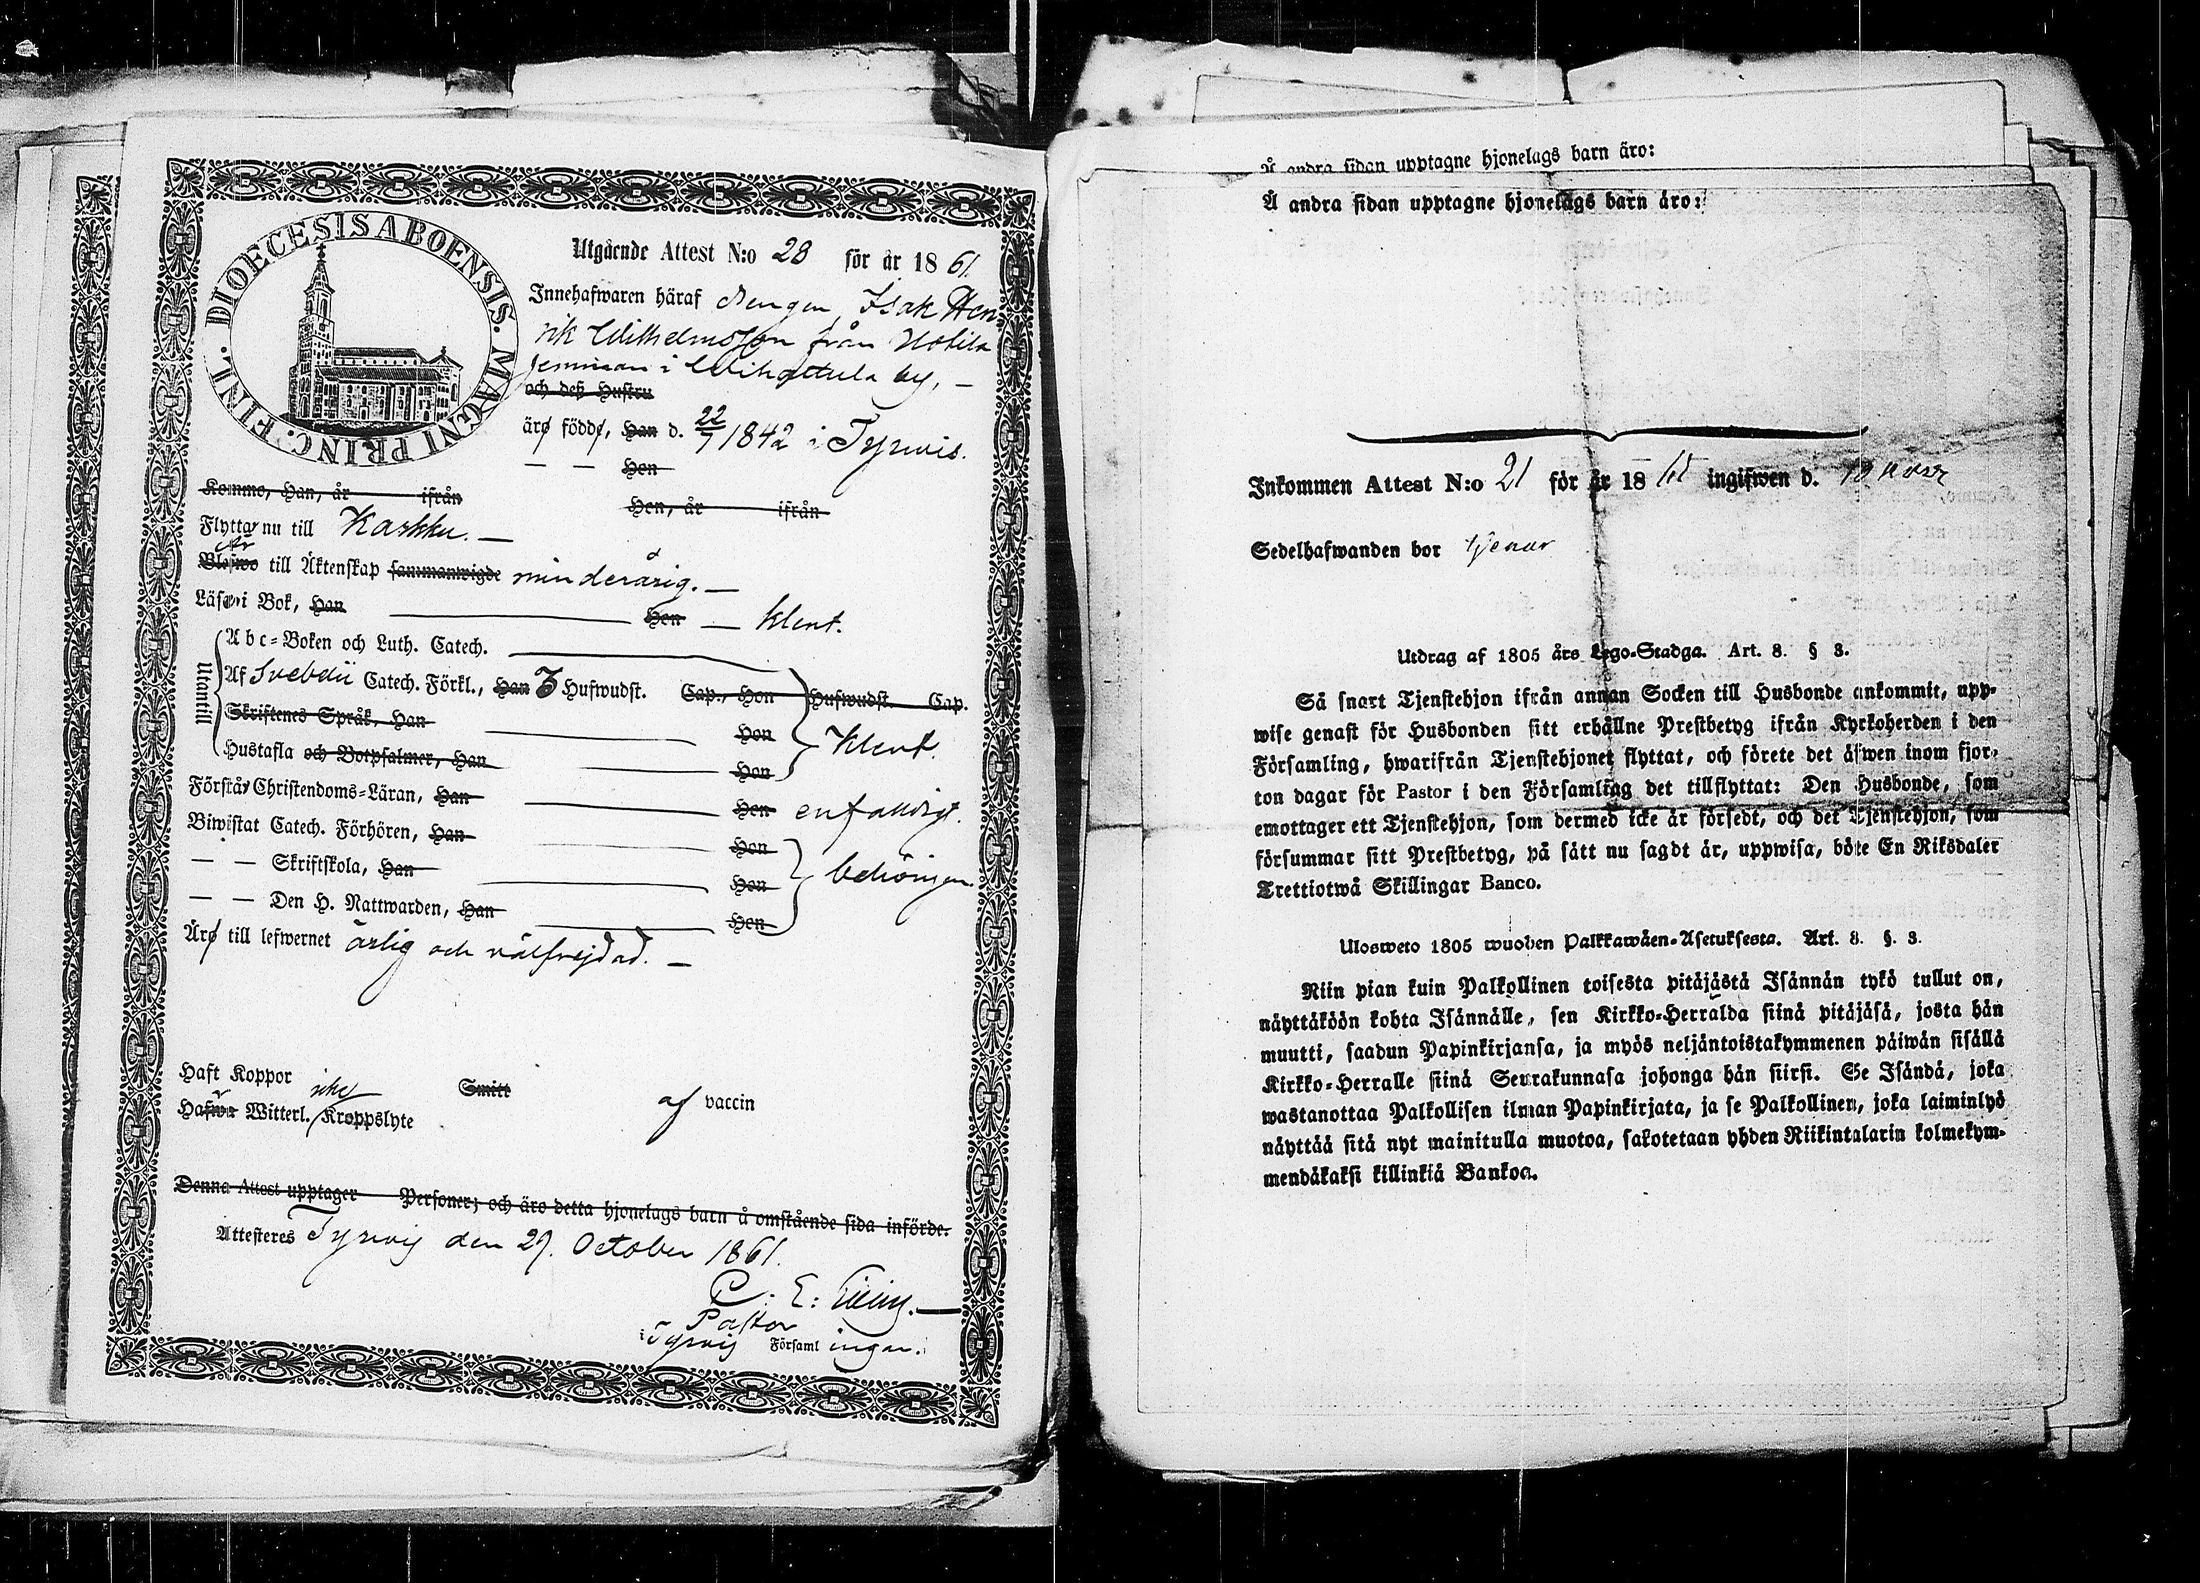 DIOECESIS ABOENSIS. MAGNI PRINC. FINL.
Utgående Attest N:o 28 för år 1861.
Innehafwaren häraf drengen Isak Hen
rik Wilhelmsson från
i by, —
och deß Hustru
äro födde, Han d. 22/7 1842 i Tyrwis.
— — Hon
Komne, Han, år ifrån Hon, år ifrån
Flyttar nu till Karkku. —
Är
Blefwo till Äktenskap sammanwigde minderårig. —
Läser i Bok, Han Hon — klent.
Utantill
Abc-Boken och Luth. Catech.
Af Svebelii Catech. Förkl., Han 3 Hufwudst. Cap., Hon Hufwudst. Cap.
Skriftenes Språk, Han Hon
Hustafla och Botpsalmer, Han Hon klent.
Förstår Christendoms-Läran, Han Hon enfaldigt.
Biwistat Catech. Förhören, Han Hon
— — Skriftskola, Han Hon behörigen
— — Den H. Nattwarden, Han Hon
Äro till lefwernet ärlig och välfrejdad. —
Haft Koppor Smitt af vaccin
icke
Hafwa Witterl. Kroppslyte
Denna Attest upptager Personer; och äro detta hjonelags barn å omstående sida införde.
Attesteres Tyrvis den 27. October 1861.
C. E.
Pastor
i Tyrvis Församl ingar.
Å andra sidan upptagne hjonelags barn äro:
Å andra sidan upptagne hjonelags barn äro:
Inkommen Attest N:o 21 för år 1861 ingifwen d. 10 novbr
Sedelhafwanden bor
Utdrag af 1805 års Lego-Stadga. Art. 8. § 3.
Så snart Tjenstehjon ifrån annan Socken till Husbonde ankommit, upp-
wise genast för Husbonden sitt erhållne Prestbetyg ifrån Kyrkoherden i den
Församling, hwarifrån Tjenstehjonet flyttat, och förete det äfwen inom fjor-
ton dagar för Pastor i den Församling det tillflyttat: Den Husbonde, som
emottager ett Tjenstehjon, som dermed icke är försedt, och det Tjenstehjon, som
försummar sitt Prestbetyg, på sätt nu sagdt är, uppwisa, böte En Riksdaler
Trettiotwå Skillingar Banco.
Ulosweto 1805 wuoden Palkkawäen-Asetuksesta. Art. 8. §. 3.
Niin pian kuin Palkollinen toisesta pitäjästä Isännän tykö tullut on,
näyttäköön kohta Isännälle, sen Kirkko-Herralda siinä pitäjäsä, josta hän
muutti, saadun Papinkirjansa, ja myös neljäntoistakymmenen päiwän sisällä
Kirkko-Herralle siinä Seurakunnasa johonga hän siirsi. Se Isändä, joka
wastanottaa Palkollisen ilman Papinkirjata, ja se Palkollinen, joka laiminlyö
näyttää sitä nyt mainitulla muotoa, sakotetaan yhden Riikintalarin kolmekym-
mendäkaksi killinkiä Bankoa.